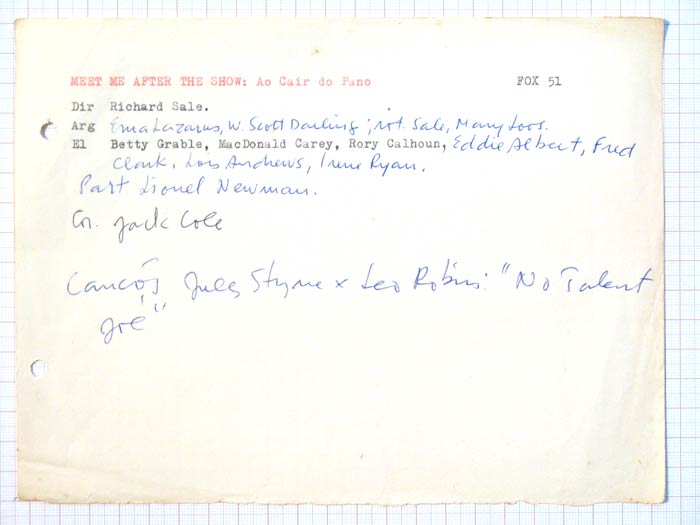 MEET ME AFTER THE SHOW: Ao Cair do Pano FOX 51
Dir Richard Sale.
Arg Erna Lazarus, W. Scott Darling; rot. Sale, Mary Loos.
El Betty Grable, MacDonald Carey, Rory Calhoun, Eddie Albert, Fred
Clark, Lois Andrews, Irene Ryan.
Part Lionel Newman.
Cr. Jack Cole
Jules Styne x Leo Robin: "No Talent
Joe"